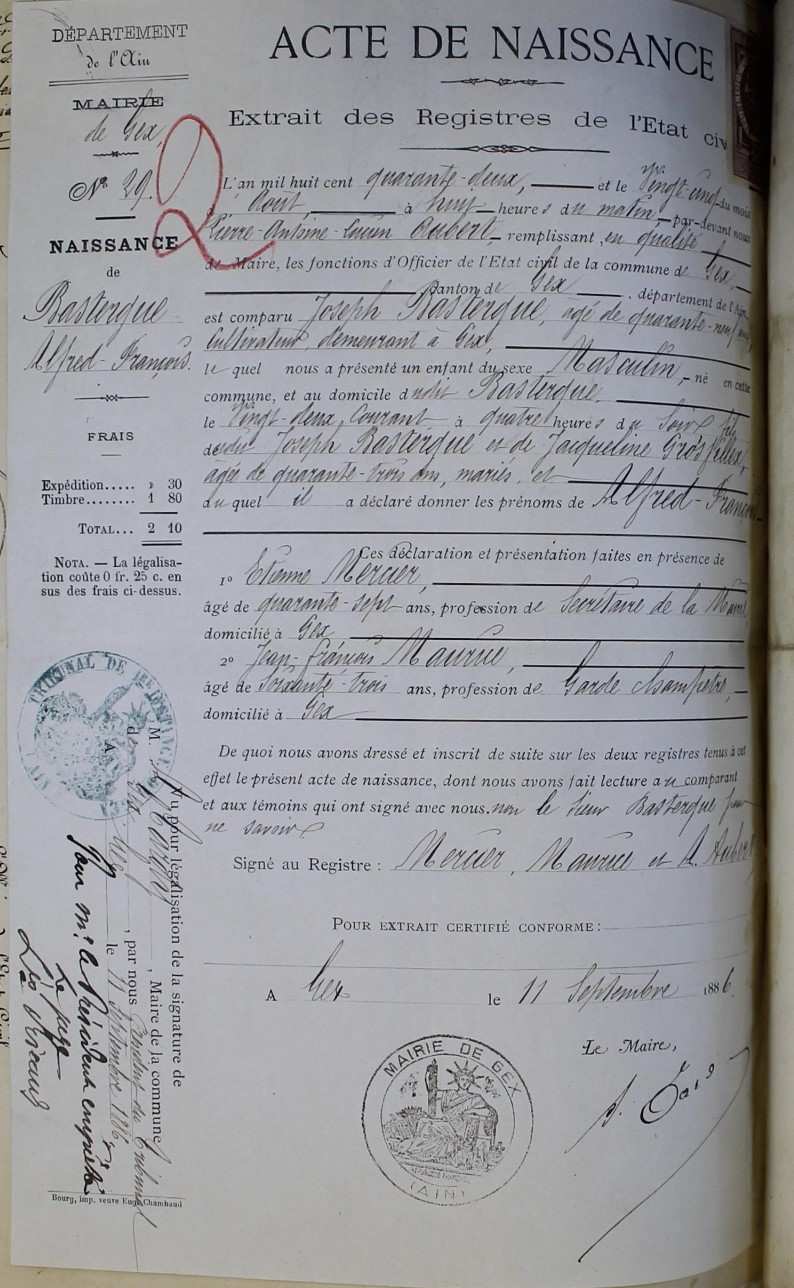 DÉPARTEMENT
de l'Ain
MAIRIE
de Gex,
N° 29.
NAISSANCE
de
Bastergue
Alfred-François.
FRAIS
Expédition..... » 30
Timbre........ 1 80
TOTAL... 2 10
NOTA. — La légalisa-
tion coûte 0 fr. 25 c. en
sus des frais ci-dessus.
ACTE DE NAISSANCE
Extrait des Registres de l'Etat civ
L'an mil huit cent quarante-deux, et le Vingt-cinq du mois
d'Août, à huit heures du matin, par-devant nous
Pierre-Antoine- Aubert remplissant, en qualité
de Maire, les fonctions d'Officier de l'Etat civil de la commune de Gex,
canton de Gex, département de l'Ain,
est comparu Joseph Bastergue, agé de quarante-neuf ans,
Cultivateur, demeurant à Gex,
le quel nous a présenté un enfant du sexe Masculin, né en cette
commune, et au domicile dudit Bastergue,
le Vingt-deux Courant à quatre heures du Soir, fils
dudit Joseph Bastergue et de Jacqueline
agée de quarante-trois ans, mariés, et
du quel il a déclaré donner les prénoms de Alfred-François
Ces déclaration et présentation faites en présence de
1° Etienne Mercier,
âgé de quarante-sept ans, profession de Secrétaire de la Mairie
domicilié à Gex
2° Jean-François Maurice,
âgé de Soixante-trois ans, profession de Garde Champetre,
domicilié à Gex
De quoi nous avons dressé et inscrit de suite sur les deux registres tenus à cet
effet le présent acte de naissance, dont nous avons fait lecture au comparant
et aux témoins qui ont signé avec nous. non le sieur Bastergue pour
ne savoir
Signé au Registre : Mercier, Maurice et A. Aubert
POUR EXTRAIT CERTIFIÉ CONFORME :
A Gex le 11 Septembre 1886.
Le Maire,
MAIRIE DE GEX
(AIN)
TRIBUNAL DE 1RE INSTANCE
Vu pour légalisation de la signature de
M. , Maire de la commune
de Gex, par nous Président du Tribunal
A Gex le 11 Septembre 1886
Pour Mr. le Président empêché
Le juge
Bourg, imp. veuve Eug. Chambaud